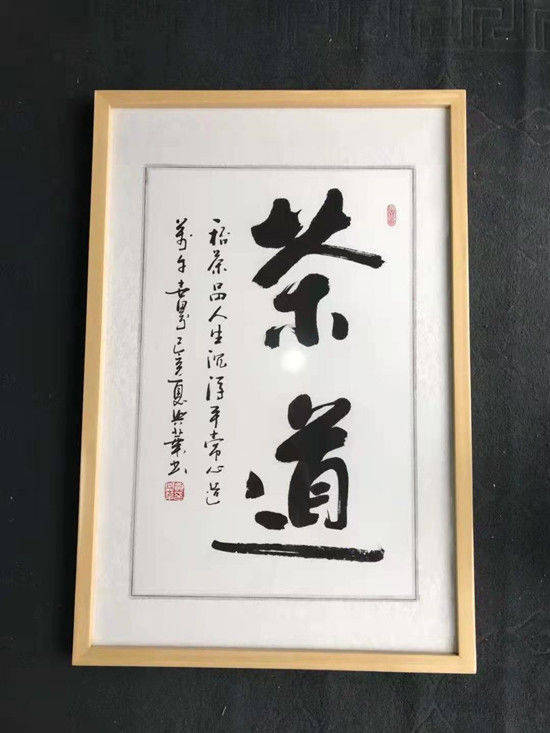 茶道
茶品人生沉浮平常心造
萬千世界己亥夏兴華书